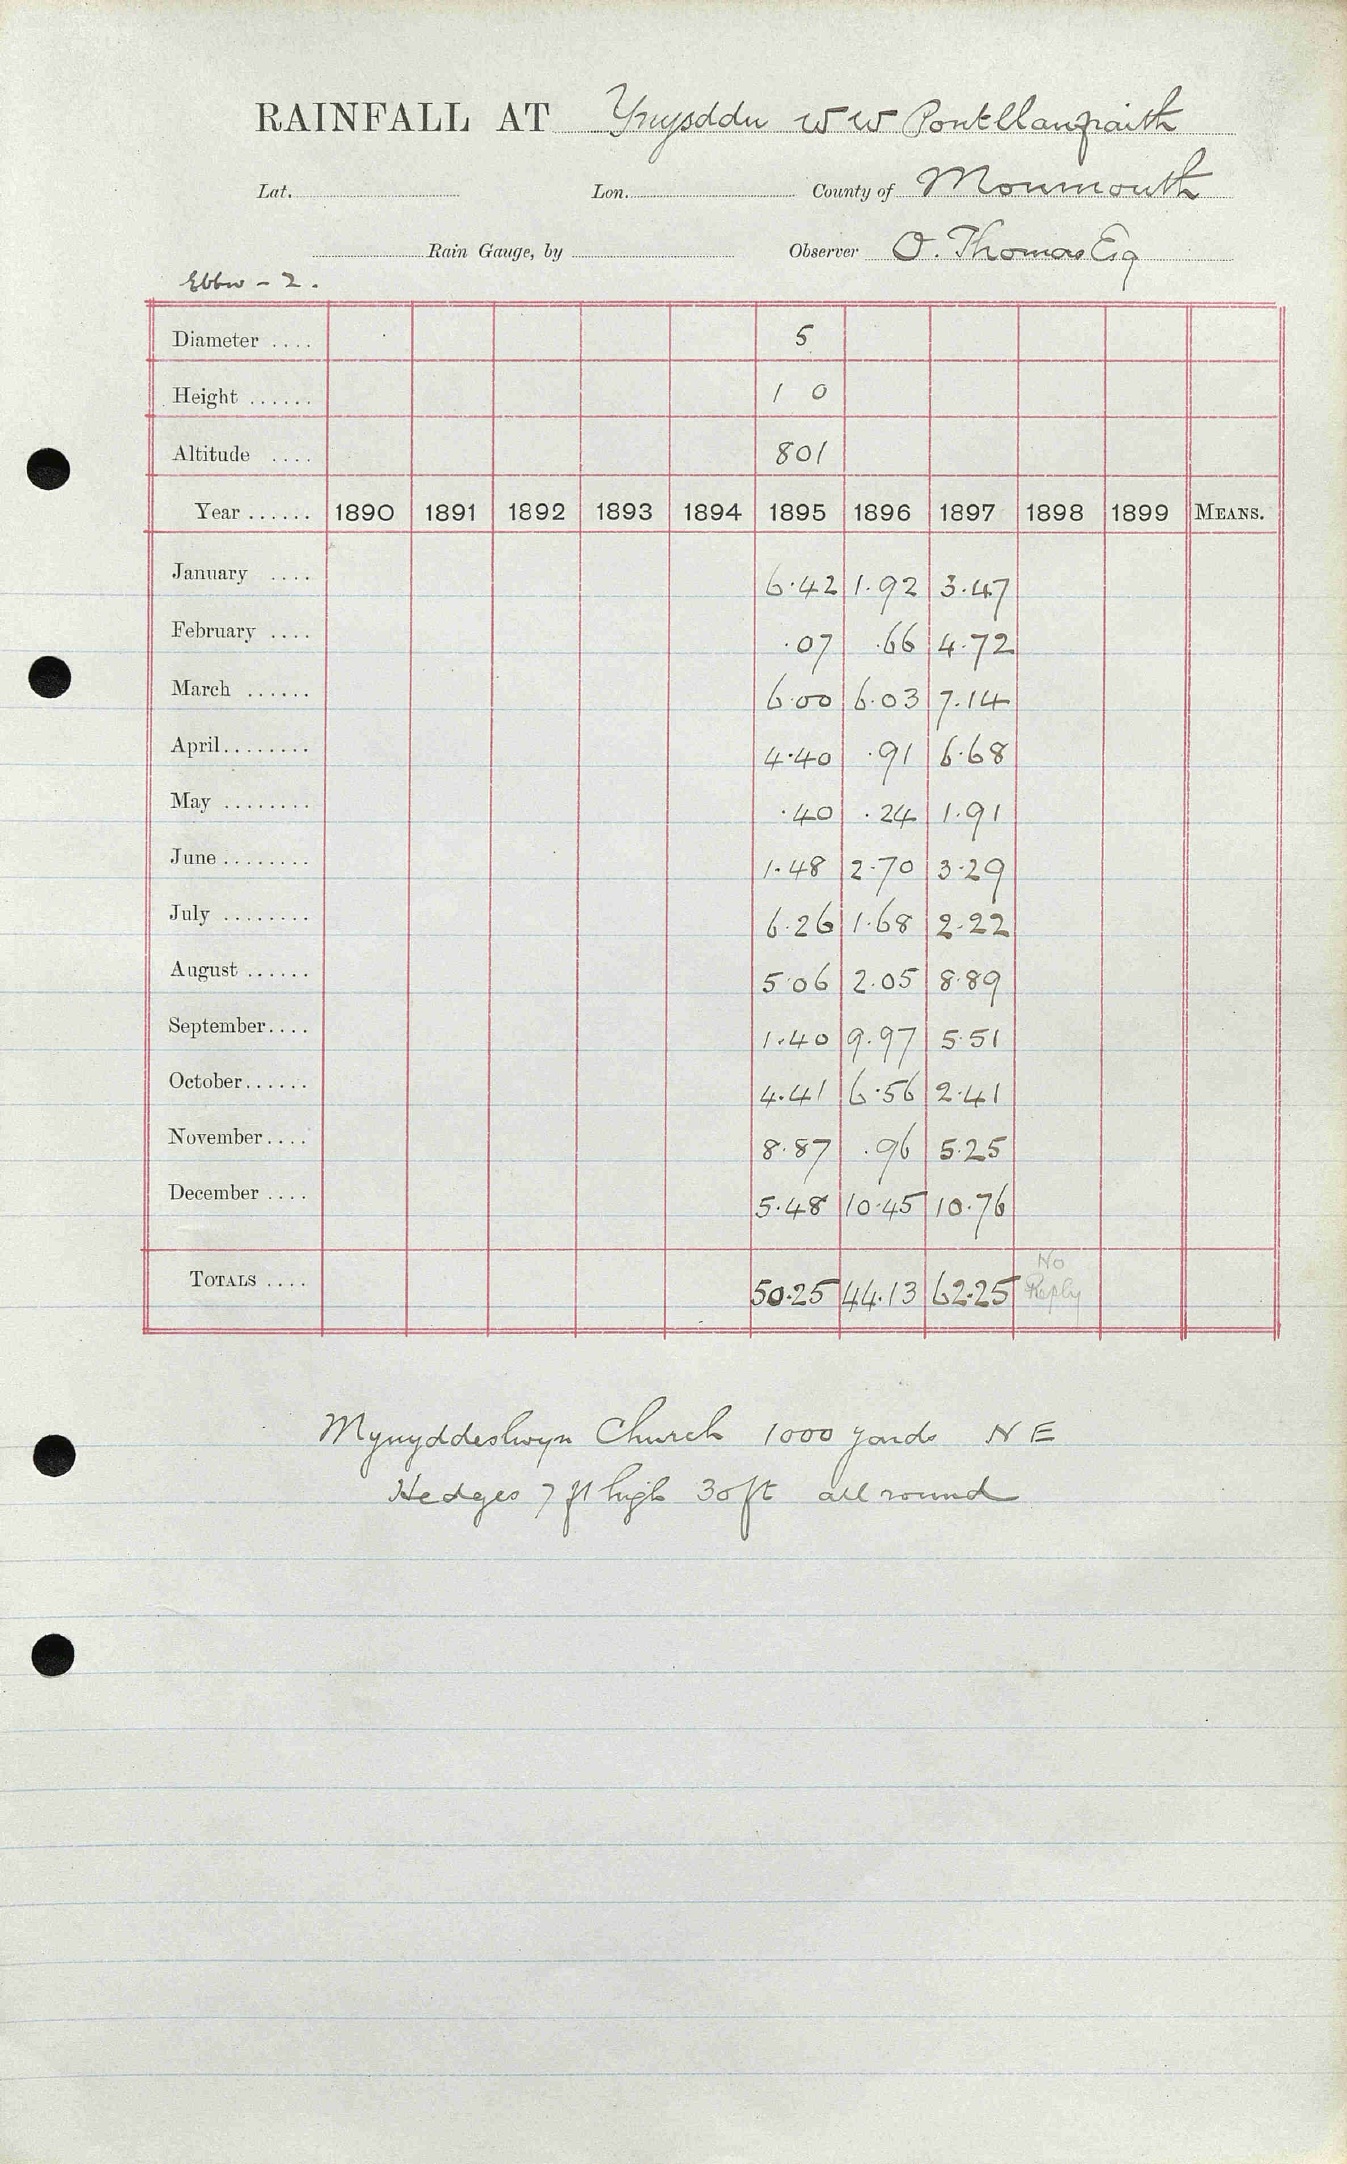 RAINFALL AT Ynysddu W W Pontllanfraith
Lat. Lon. County of Monmouth
Rain Gauge, by Observer O. Thomas Esq
Ebbw - 2.
Diameter .... 5
Height ...... 1 0
Altitude .... 801
Year ...... 1890 1891 1892 1893 1894 1895 1896 1897 1898 1899 MEANS.
January .... 6.42 1.92 3.47
February .... .07 .66 4.72
March ...... 6.00 6.03 7.14
April........ 4.40 .91 6.68
May ........ .40 .24 1.91
June ........ 1.48 2.70 3.29
July ........ 6.26 1.68 2.22
August ...... 5.06 2.05 8.89
September.... 1.40 9.97 5.51
October...... 4.41 6.56 2.41
November.... 8.87 .96 5.25
December .... 5.48 10.45 10.76
TOTALS .... 50.25 44.13 62.25 No Reply
Mynyddeslwyn Church 1000 yards N E
Hedges 7 ft high 30 ft all round